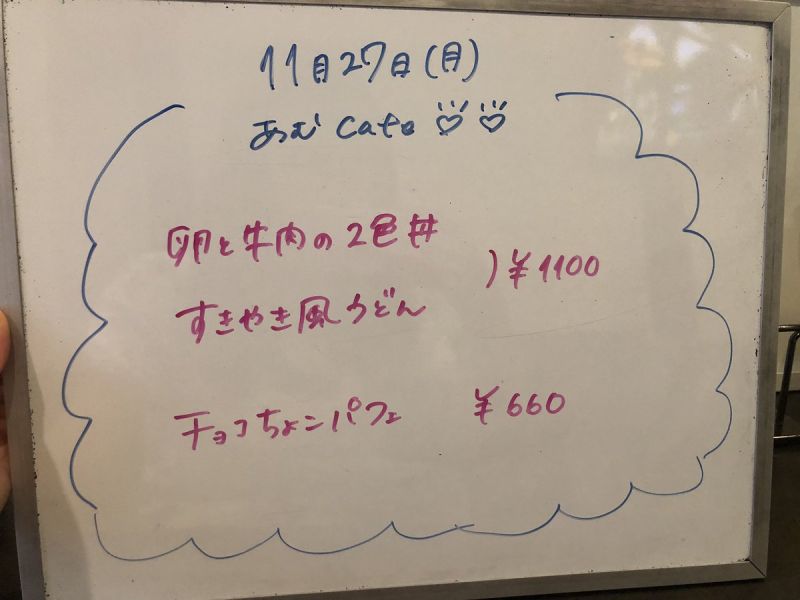 11月27日(月)
あつむ Cafe ♡ ♡
卵と牛肉の2色丼
すきやき風うどん
)¥1100
チョコちょこパフェ ¥660